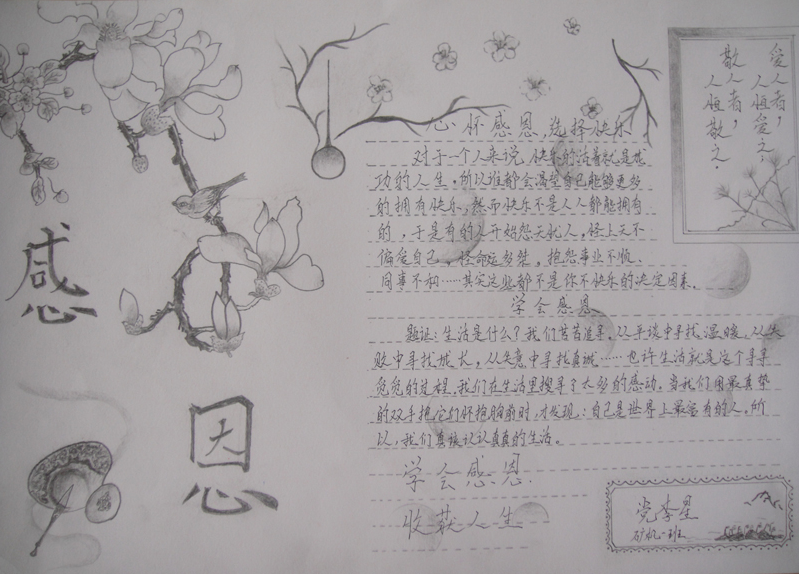 感
恩
心怀感恩,选择快乐
对于一个人来说,快乐的活着就是成
功的人生。所以谁都会渴望自己能够更多
的拥有快乐,然而快乐不是人人都能拥有
的,于是有的人开始怨天尤人,怪上天不
偏爱自己,怪命运多桀,抱怨事业不顺、
同事不和……其实这些都不是你不快乐的决定因素。
学会感恩
题记:生活是什么?我们苦苦追寻,从平谈中寻找温暖,从失
败中寻找成长,从失意中寻找真诚……也许生活就是这个寻寻
觅觅的过程,我们在生活里搜寻了太多的感动,当我们用最真挚
的双手把它们怀抱胸前时,才发现:自己是世界上最富有的人。所
以,我们真该认认真真的生活。
学会感恩
收获人生
爱人者,
人恒爱之,
敬人者,
人恒敬之。
党李星
矿机一班